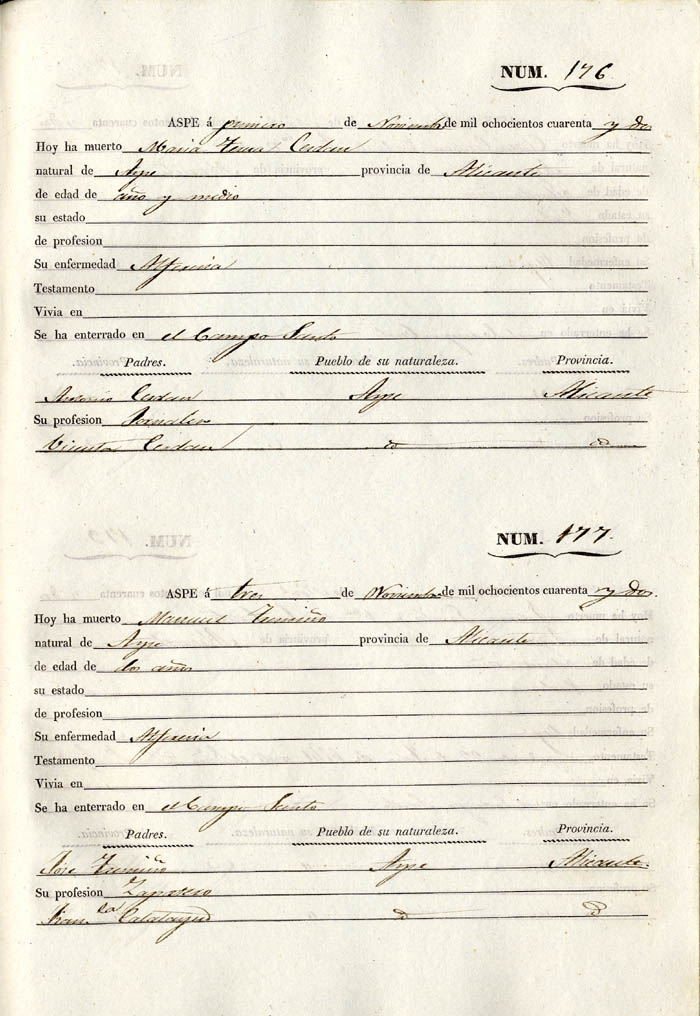 NUM. 176
ASPE á primero de Noviembre de mil ochocientos cuarenta y dos
Hoy ha muerto Maria Cerdan
natural de Aspe provincia de Alicante
de edad de año y medio
su estado
de profesion
Su enfermedad Alferecia
Testamento
Vivia en
Se ha enterrado en el Campo Santo
Padres. Pueblo de su naturaleza. Provincia.
Antonio Cerdan Aspe Alicante
Su profesion Jornalero
Vicenta Cerdan d d
NUM. 177.
ASPE á tres de Noviembre de mil ochocientos cuarenta y dos.
Hoy ha muerto Manuel
natural de Aspe provincia de Alicante
de edad de dos años
su estado
de profesion
Su enfermedad Alferecia
Testamento
Vivia en
Se ha enterrado en el Campo Santo
Padres. Pueblo de su naturaleza. Provincia.
Jose Aspe Alicante.
Su profesion Zapatero
Franca Calatayud d d